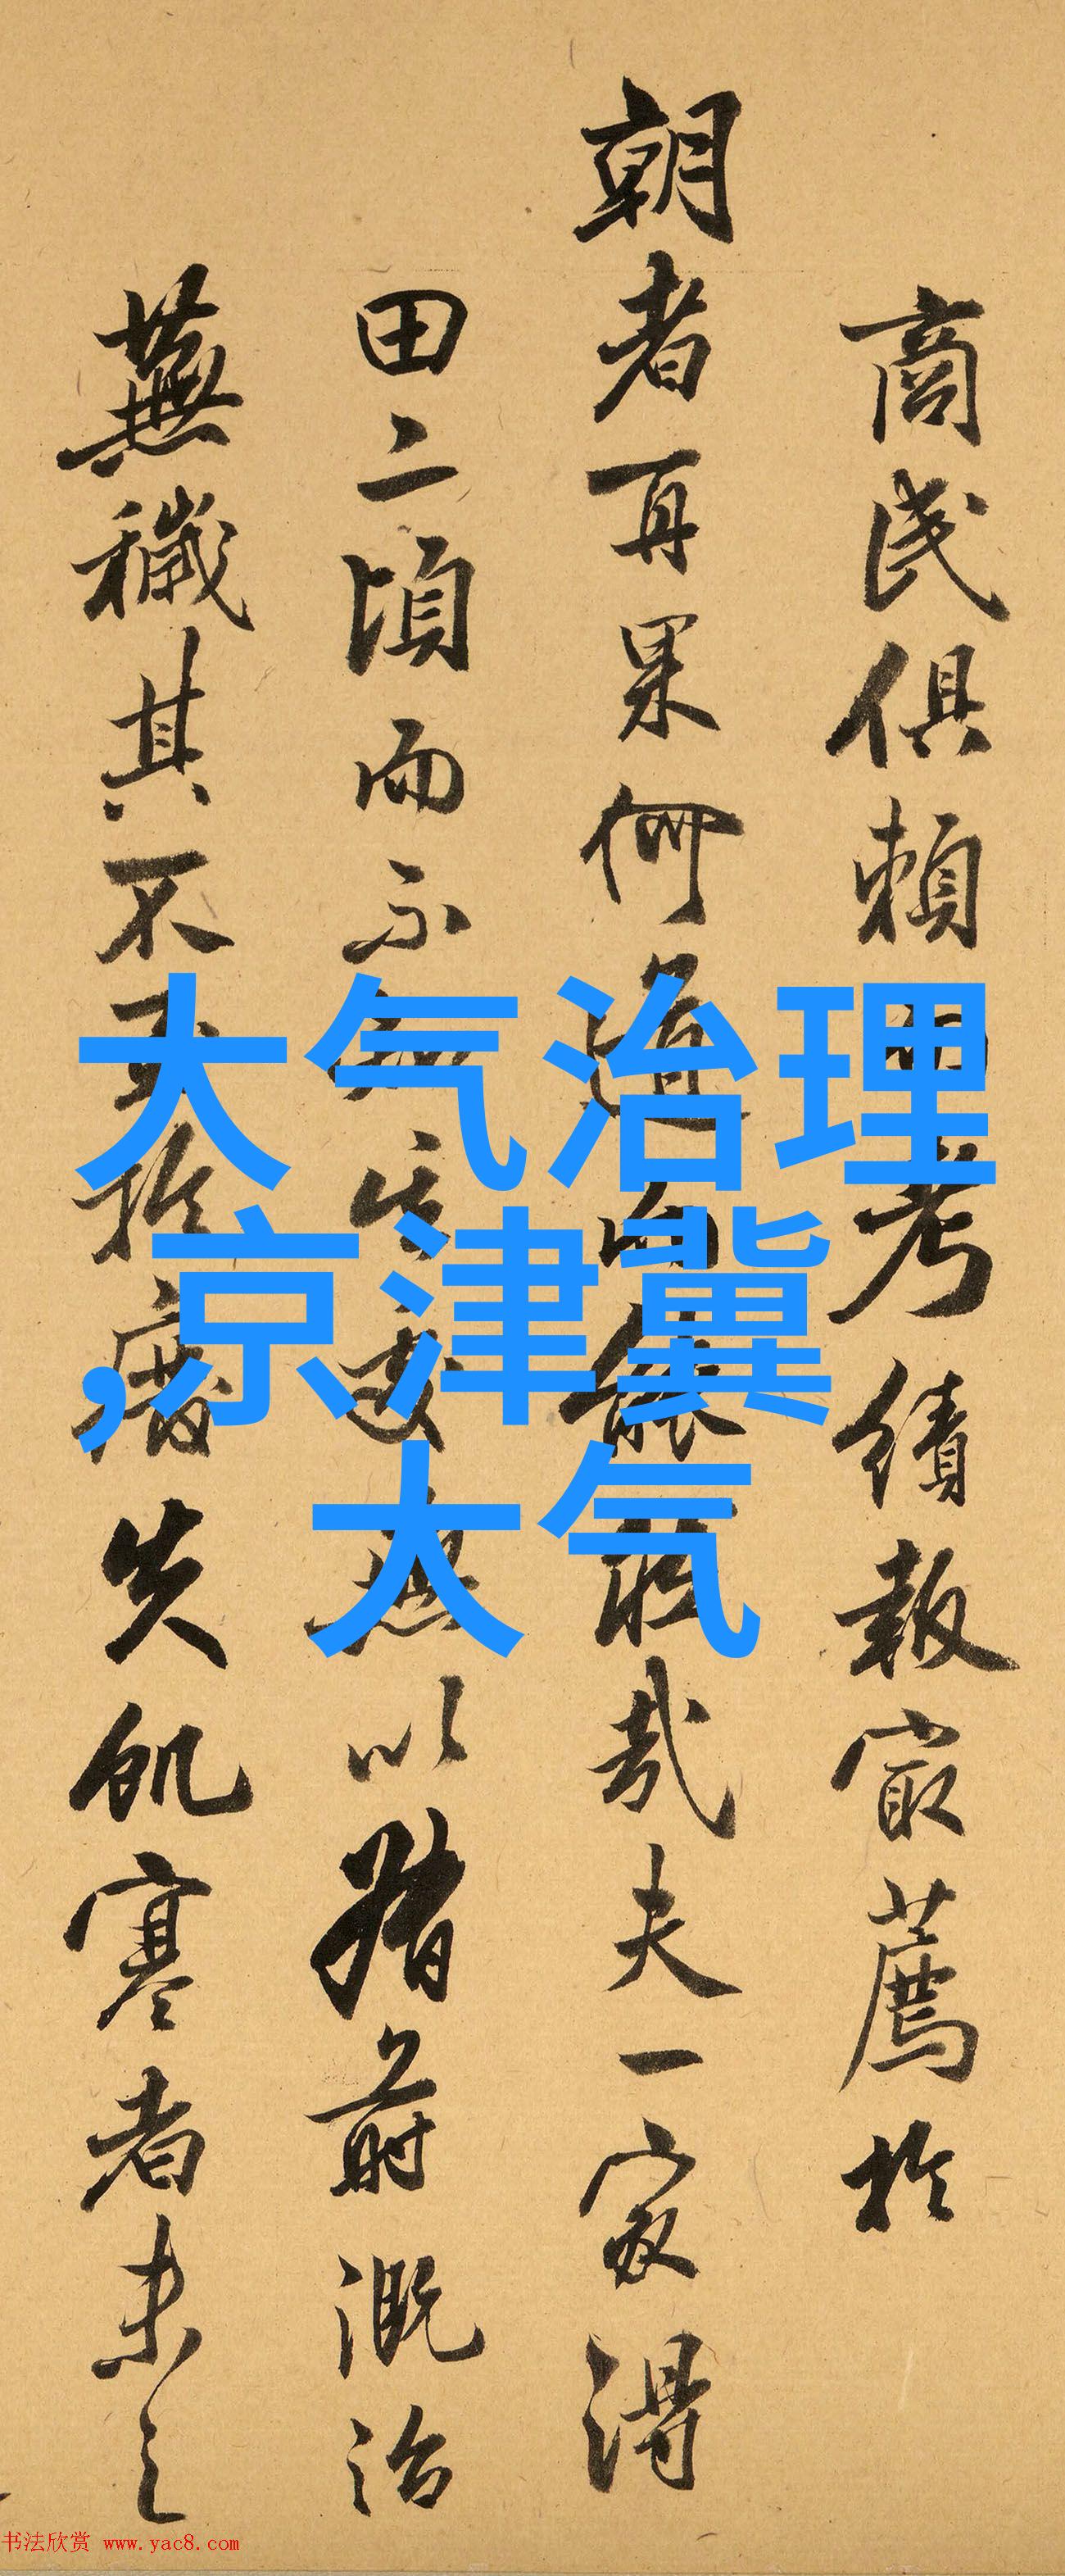 商民俱賴 考績報最薦於
朝者再累何 哉夫一家得
田二頃而不 以 前溉治
蕪穢其不 失飢寒者未之
大气治理
,京津冀
大气
书法欣赏 www.yac8.com